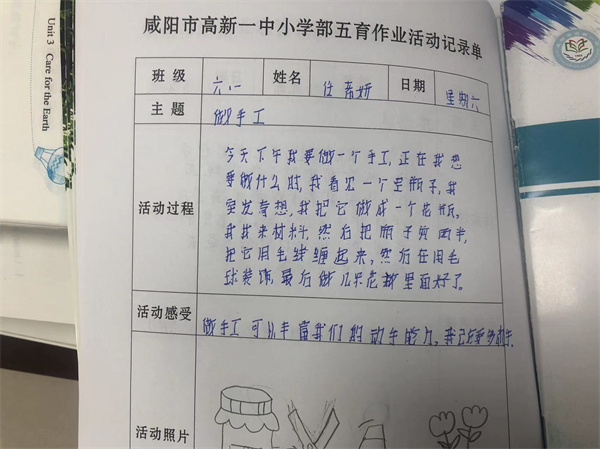 Unit 3 Care for the Earth
咸阳市高新一中小学部五育作业活动记录单
班级 六.一 姓名 任 日期 星期六
主题 做手工
活动过程
今天下午我要做一个手工,正在我想
要做什么时,我看见一个空瓶子,我
突发奇想,我把它做成一个花瓶,
我找来材料,然后把瓶子剪两半,
把它用毛线缠起来,然后在用毛
球装饰,最后做几朵花插里面好了。
活动感受 做手工可以丰富我们的动手能力,我
活动照片